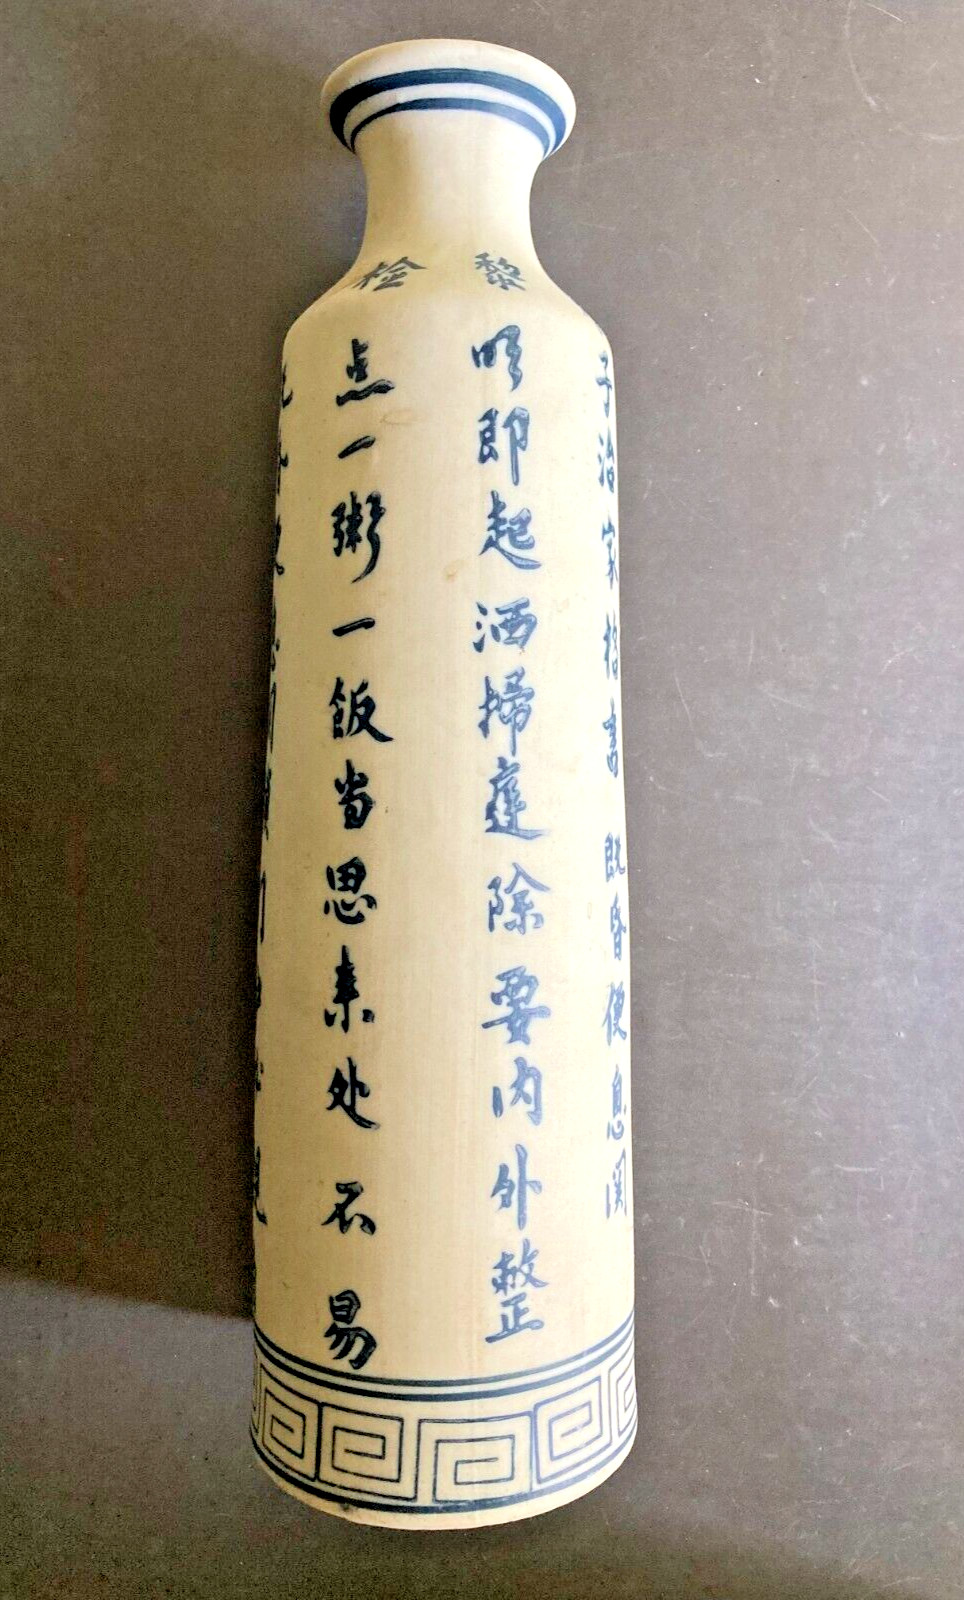 子治家格言 既昏便息関
黎明即起洒掃庭除要内外整
检点一粥一飯当思来处不易